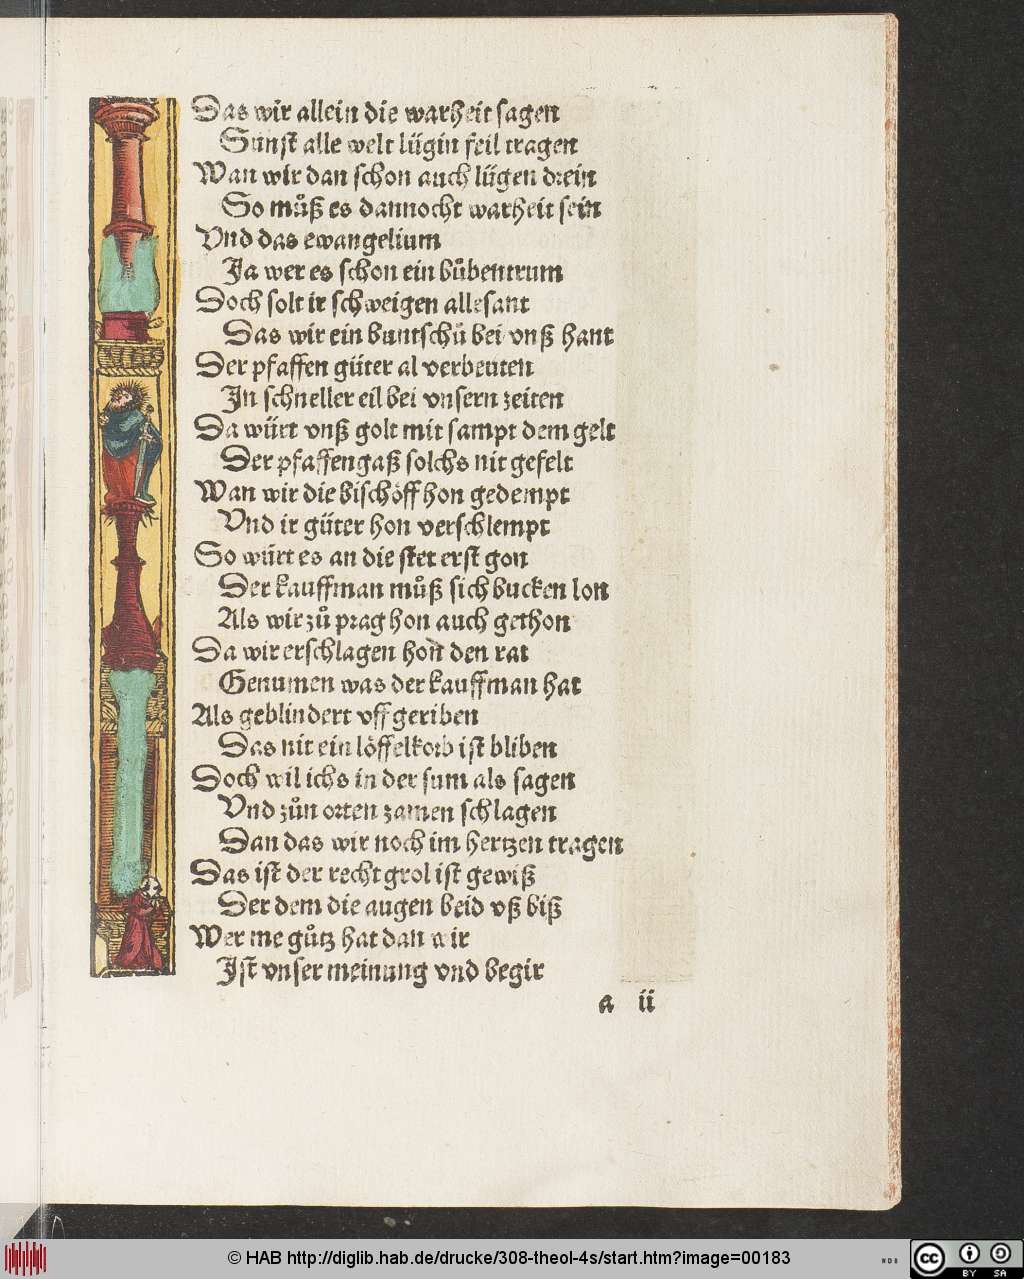 Das wir allein die warheit sagen
Sunst alle welt lügin feil tragen
Wan wir dan schon auch lügen drein
So můß es dannocht warheit sein
Vnd das ewangelium
Ja wer es schon ein bůbentrum
Doch solt ir schweigen allesant
Das wir ein buntschů bei vnß hant
Der pfaffen güter al verbeuten
In schneller eil bei vnsern zeiten
Da würt vnß golt mit sampt dem gelt
Der pfaffengaß solchs nit gefelt
Wan wir die bischöff hon gedempt
Vnd ir güter hon verschlempt
So würt es an die stet erst gon
Der kauffman můß sich bucken lon
Als wir zů prag hon auch gethon
Da wir erschlagen hon den rat
Genumen was der kauffman hat
Als geblindert vff geriben
Das nit ein löffelkorb ist bliben
Doch wil ichs in der sum als sagen
Vnd zůn orten zamen schlagen
Dan das wir noch im hertzen tragen
Das ist der recht grol ist gewiß
Der dem die augen beid vß biß
Wer me gůtz hat dan wir
Ist vnser meinung vnd begir
a ii
© HAB http://diglib.hab.de/drucke/308-theol-4s/start.htm?image=00183
WDB
cc BY SA